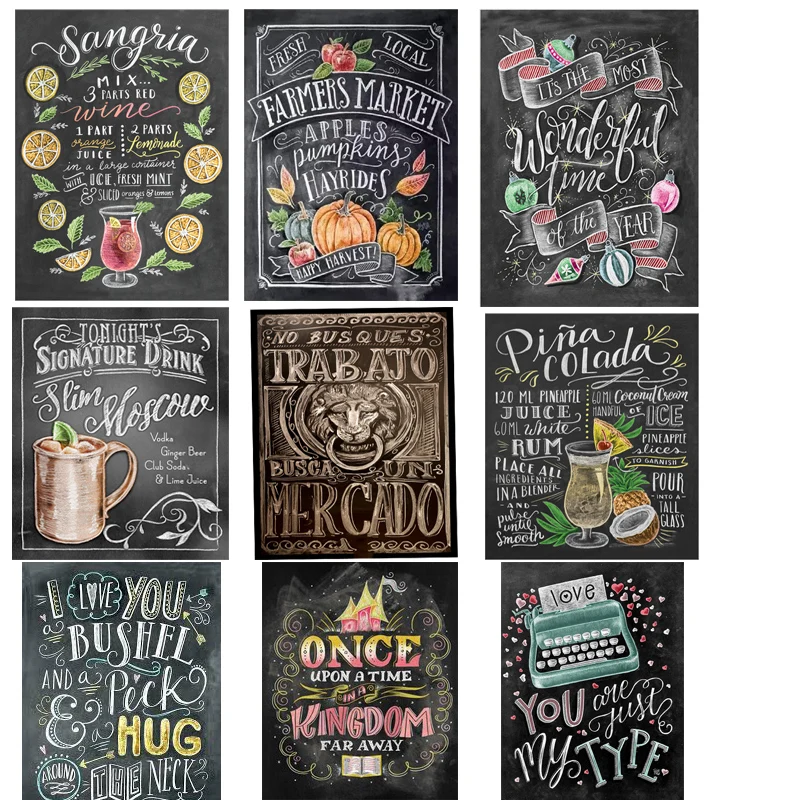 Sangria
MIX...
3 PARTS RED
wine
1 PART
orange
JUICE
2 PARTS
Lemonade
in a large container
WITH ICE, FRESH MINT
& SLICED oranges & lemons
FRESH LOCAL
FARMERS MARKET
APPLES
pumpkins
HAYRIDES
HAPPY HARVEST!
IT'S THE MOST
Wonderful
time
of the YEAR
TONIGHT'S
SIGNATURE DRINK
Slim Moscow
Vodka
Ginger Beer
Club Soda
& Lime Juice
"NO BUSQUES
TRABAJO
BUSCA UN
MERCADO
Piña
COLADA
120 ML PINEAPPLE
JUICE
60 ML white
RUM
PLACE ALL
INGREDIENTS
IN A BLENDER
-AND-
pulse
until
Smooth
60 ML Coconut Cream
HANDFUL OF ICE
PINEAPPLE
slices
TO GARNISH
POUR
INTO A
TALL
GLASS
I LOVE YOU
a BUSHEL
AND a Peck
& a HUG
AROUND THE NECK
ONCE
UPON A TIME
IN A
KINGDOM
FAR AWAY
love
YOU are
just
my TYPE